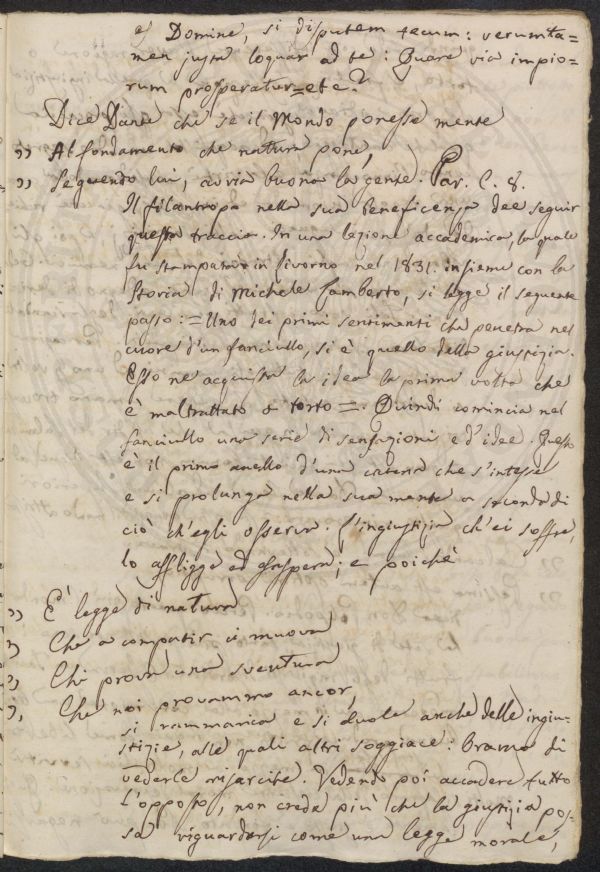 es Domine, si disputem tecum: verumta=
men justa loquar ad te: Quare via impio=
rum prosperatur=etc?
Dice Dante che se il Mondo ponesse mente
„ Al fondamento che natura pone,
„ Seguendo lui, avria buona la gente. Par. C. 8.
Il filantropo nella sua beneficenza dee seguir
questa traccia. In una lezione accademica, la quale
fu stampata in Livorno nel 1831. insieme con la
Storia di Michele Lamberto, si legge il seguente
passo: = Uno dei primi sentimenti che penetra nel
cuore d'un fanciullo, si è quello della giustizia.
Esso ne acquista la idea la prima volta che
è maltrattato a torto =. Quindi comincia nel
fanciullo una serie di sensazioni e d'idee. Questo
è il primo anello d'una catena che s'intesse
e si prolunga nella sua mente a seconda di
ciò ch'egli osserva. L'ingiustizia ch'ei soffre,
lo affligge ed esaspera; e poichè
„ E' legge di natura
„ Che a compatir ci muova
„ Chi prova una sventura
„ Che noi provammo ancor,
si rammarica e si duole anche delle ingiu-
stizie, alle quali altri soggiace: Bramo di
vederle risarcite. Vedendo poi accadere tutto
l'opposto, non crede più che la giustizia pos-
sa riguardarsi come una legge morale,